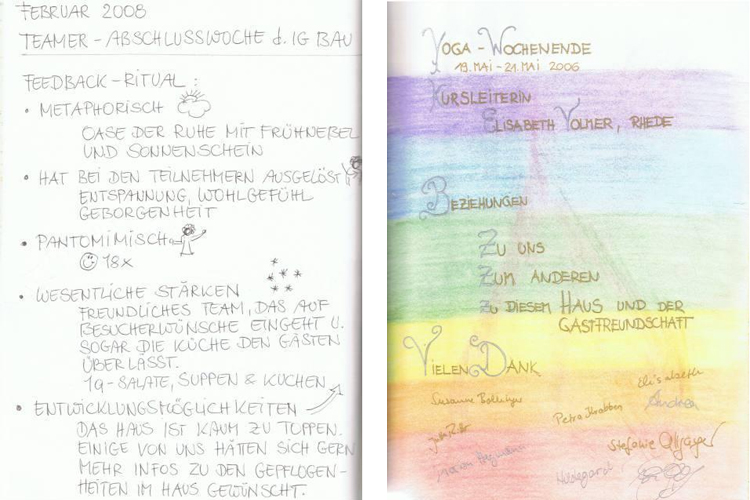 FEBRUAR 2008
TEAMER - ABSCHLUSSWOCHE d. IG BAU
FEEDBACK - RITUAL :
• METAPHORISCH
OASE DER RUHE MIT FRÜHNEBEL
UND SONNENSCHEIN
• HAT BEI DEN TEILNEHMERN AUSGELÖST
ENTSPANNUNG, WOHLGEFÜHL
GEBORGENHEIT
• PANTOMIMISCH
18x
• WESENTLICHE STÄRKEN
FREUNDLICHES TEAM, DAS AUF
BESUCHERWÜNSCHE EINGEHT U.
SOGAR DIE KÜCHE DEN GÄSTEN
ÜBERLÄSST.
1a - SALATE, SUPPEN & KUCHEN
• ENTWICKLUNGSMÖGLICHKEITEN
DAS HAUS IST KAUM ZU TOPPEN.
EINIGE VON UNS HÄTTEN SICH GERN
MEHR INFOS ZU DEN GEPFLOGEN-
HEITEN IM HAUS GEWÜNSCHT.
YOGA - WOCHENENDE
19. MAI - 21. MAI 2006
KURSLEITERIN
ELISABETH VOLMER, RHEDE
BEZIEHUNGEN
ZU UNS
ZUM ANDEREN
ZU DIESEM HAUS UND DER
GASTFREUNDSCHAFT
VIELEN DANK
Elisabeth
Susanne
Andrea
Petra
Stefanie
Hildegard